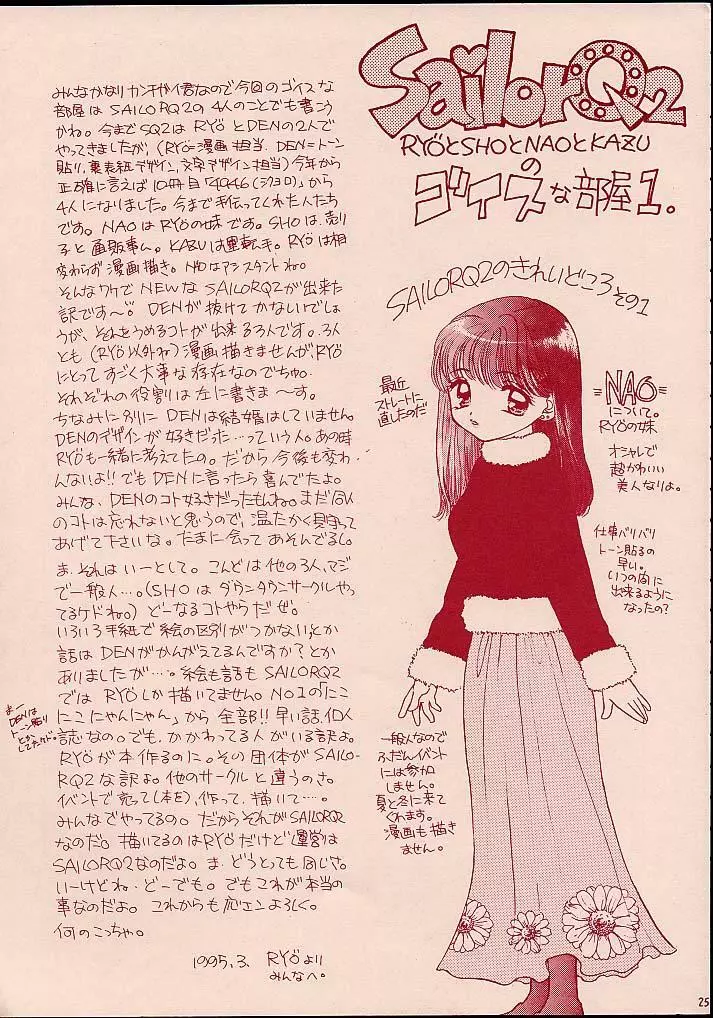 SailorQ2
RYÖとSHOとNAOとKAZU
の
ゴイスな部屋1。
みんなかなりカンチガイ君なので今回のゴイスな
部屋はSAILORQ2の4人のことでも書こう
かね。今までSQ2はRYÖとDENの2人で
やってきましたが、(RYÖ=漫画担当 DEN=トーン
貼り、裏表紙デザイン、文字デザイン担当)今年から
正確に言えば10冊目「4946(ジクヨロ)」から
4人になりました。今まで手伝ってくれた人たち
です。NAOはRYÖの妹です。SHOは、売り
子と通販事ム。KAZUは運転手。RYÖは相
変わらず漫画描き。NAOはアシスタントね。
そんなワケでNEWなSAILORQ2が出来た
訳です〜。DENが抜けてかないでしょ
うが、それをうめるコトが出来る3人です。3人
とも(RYÖ以外ね)漫画描きませんがRYÖ
にとってすごく大事な存在なのでちゅ。
それぞれの役割は左に書きま〜す。
ちなみに別にDENは結婚はしていません。
DENのデザインが好きだった…っていう人。あの時
RYÖも一緒に考えてたの。だから今後も変わ
んないよ!!でもDENに言ったら喜んでたよ。
みんな、DENのコト好きだったもんね。まだ
のコトは忘れないと思うので、温たかく見守って
あげて下さいな。たまに会ってあそんでるし。
ま、それはいーとして。こんどは他の3人、マジ
で一般人…。(SHOはダウンタウンサークルやっ
てるケドね。)どーなるコトやらだぜ。
いろいろ手紙で絵の区別がつかない、とか
話はDENがかんがえてるんですか?とか
ありましたが…。絵も話もSAILORQ2
ではRYÖしか描いてません。NO1の「にこ
にこにゃんにゃん」から全部!!早い話、個人
誌なの。でも、かかわってる人がいる訳よ。
RYÖが本作るのに。その団体がSAILO-
RQ2な訳よ。他のサークルと違うのさ。
イベントで売って(本を)、作って、描いて…。
みんなでやってるの。だからそれがSAILORQ2
なのだ。描いてるのはRYÖだけど運営は
SAILORQ2なのだよ。ま、どうとっても同じさ。
いーけどね。どーでも。でもこれが本当の
事なのだよ。これからも応エンよろしく。
何のこっちゃ。
1995.3. RYÖより
みんなへ。
まー
DENは
トーン貼り
とか
してたケド。
SAILORQ2のきれいどころその1
最近
ストレートに
直したのだ
=NAO=
について。
RYÖの妹
オシャレで
超かわいい
美人なりよ。
仕事バリバリ
トーン貼るの
早い。
いつの間に
出来るように
なったの?
一般人なので
ふだんイベント
には参加
しません。
夏と冬に来て
くれます。
漫画も描き
ません。
25